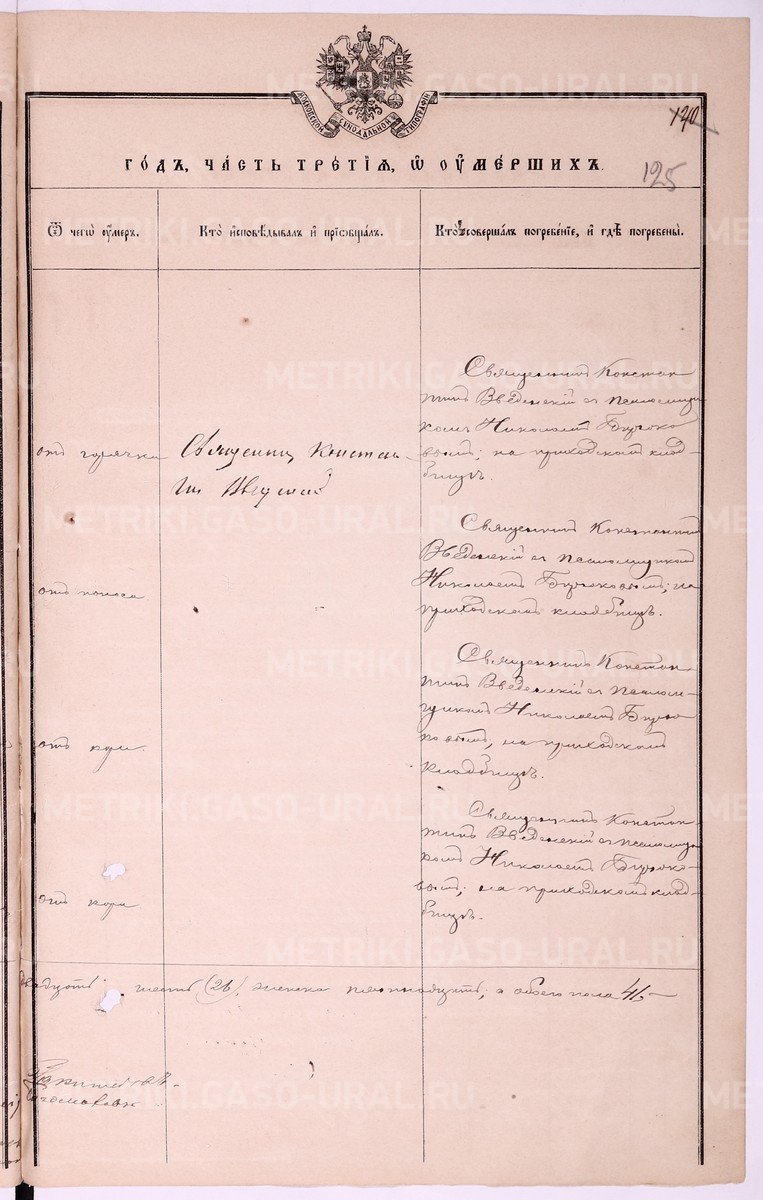 МОСКОВСКОЙ СѴНОДАЛЬНОЙ ТИПОГРАФІИ
140
125
ГОДЪ, ЧАСТЬ ТРЕТІЯ, Ѡ ОУМЕРШИХЪ.
Ѿ чегѡ оумеръ.
Кто исповѣдывалъ и приѡбщалъ.
Кто совершалъ погребеніе, и гдѣ погребены.
отъ горячки
Священникъ Констан-
тинъ Введенскій
Священникъ Констан
тинъ Введенскій съ псаломщи
комъ Николаемъ Бирюко
вымъ; на приходскомъ клад-
бищѣ.
отъ поноса
Священникъ Константинъ
Введенскій съ псаломщикомъ
Николаемъ Бирюковымъ; на
приходскомъ кладбищѣ.
отъ кори
Священникъ Констан
тинъ Введенскій съ псалом-
щикомъ Николаемъ Бирю
ковымъ, на приходскомъ
кладбищѣ.
отъ кори
Священникъ Констан
тинъ Введенскій съ псаломщи
комъ Николаемъ Бирюко-
вымъ; на приходскомъ клад-
бищѣ.
двадцать шесть (26), женска пятнадцать, а обоего пола 41
METRIKI.GASO-URAL.RU